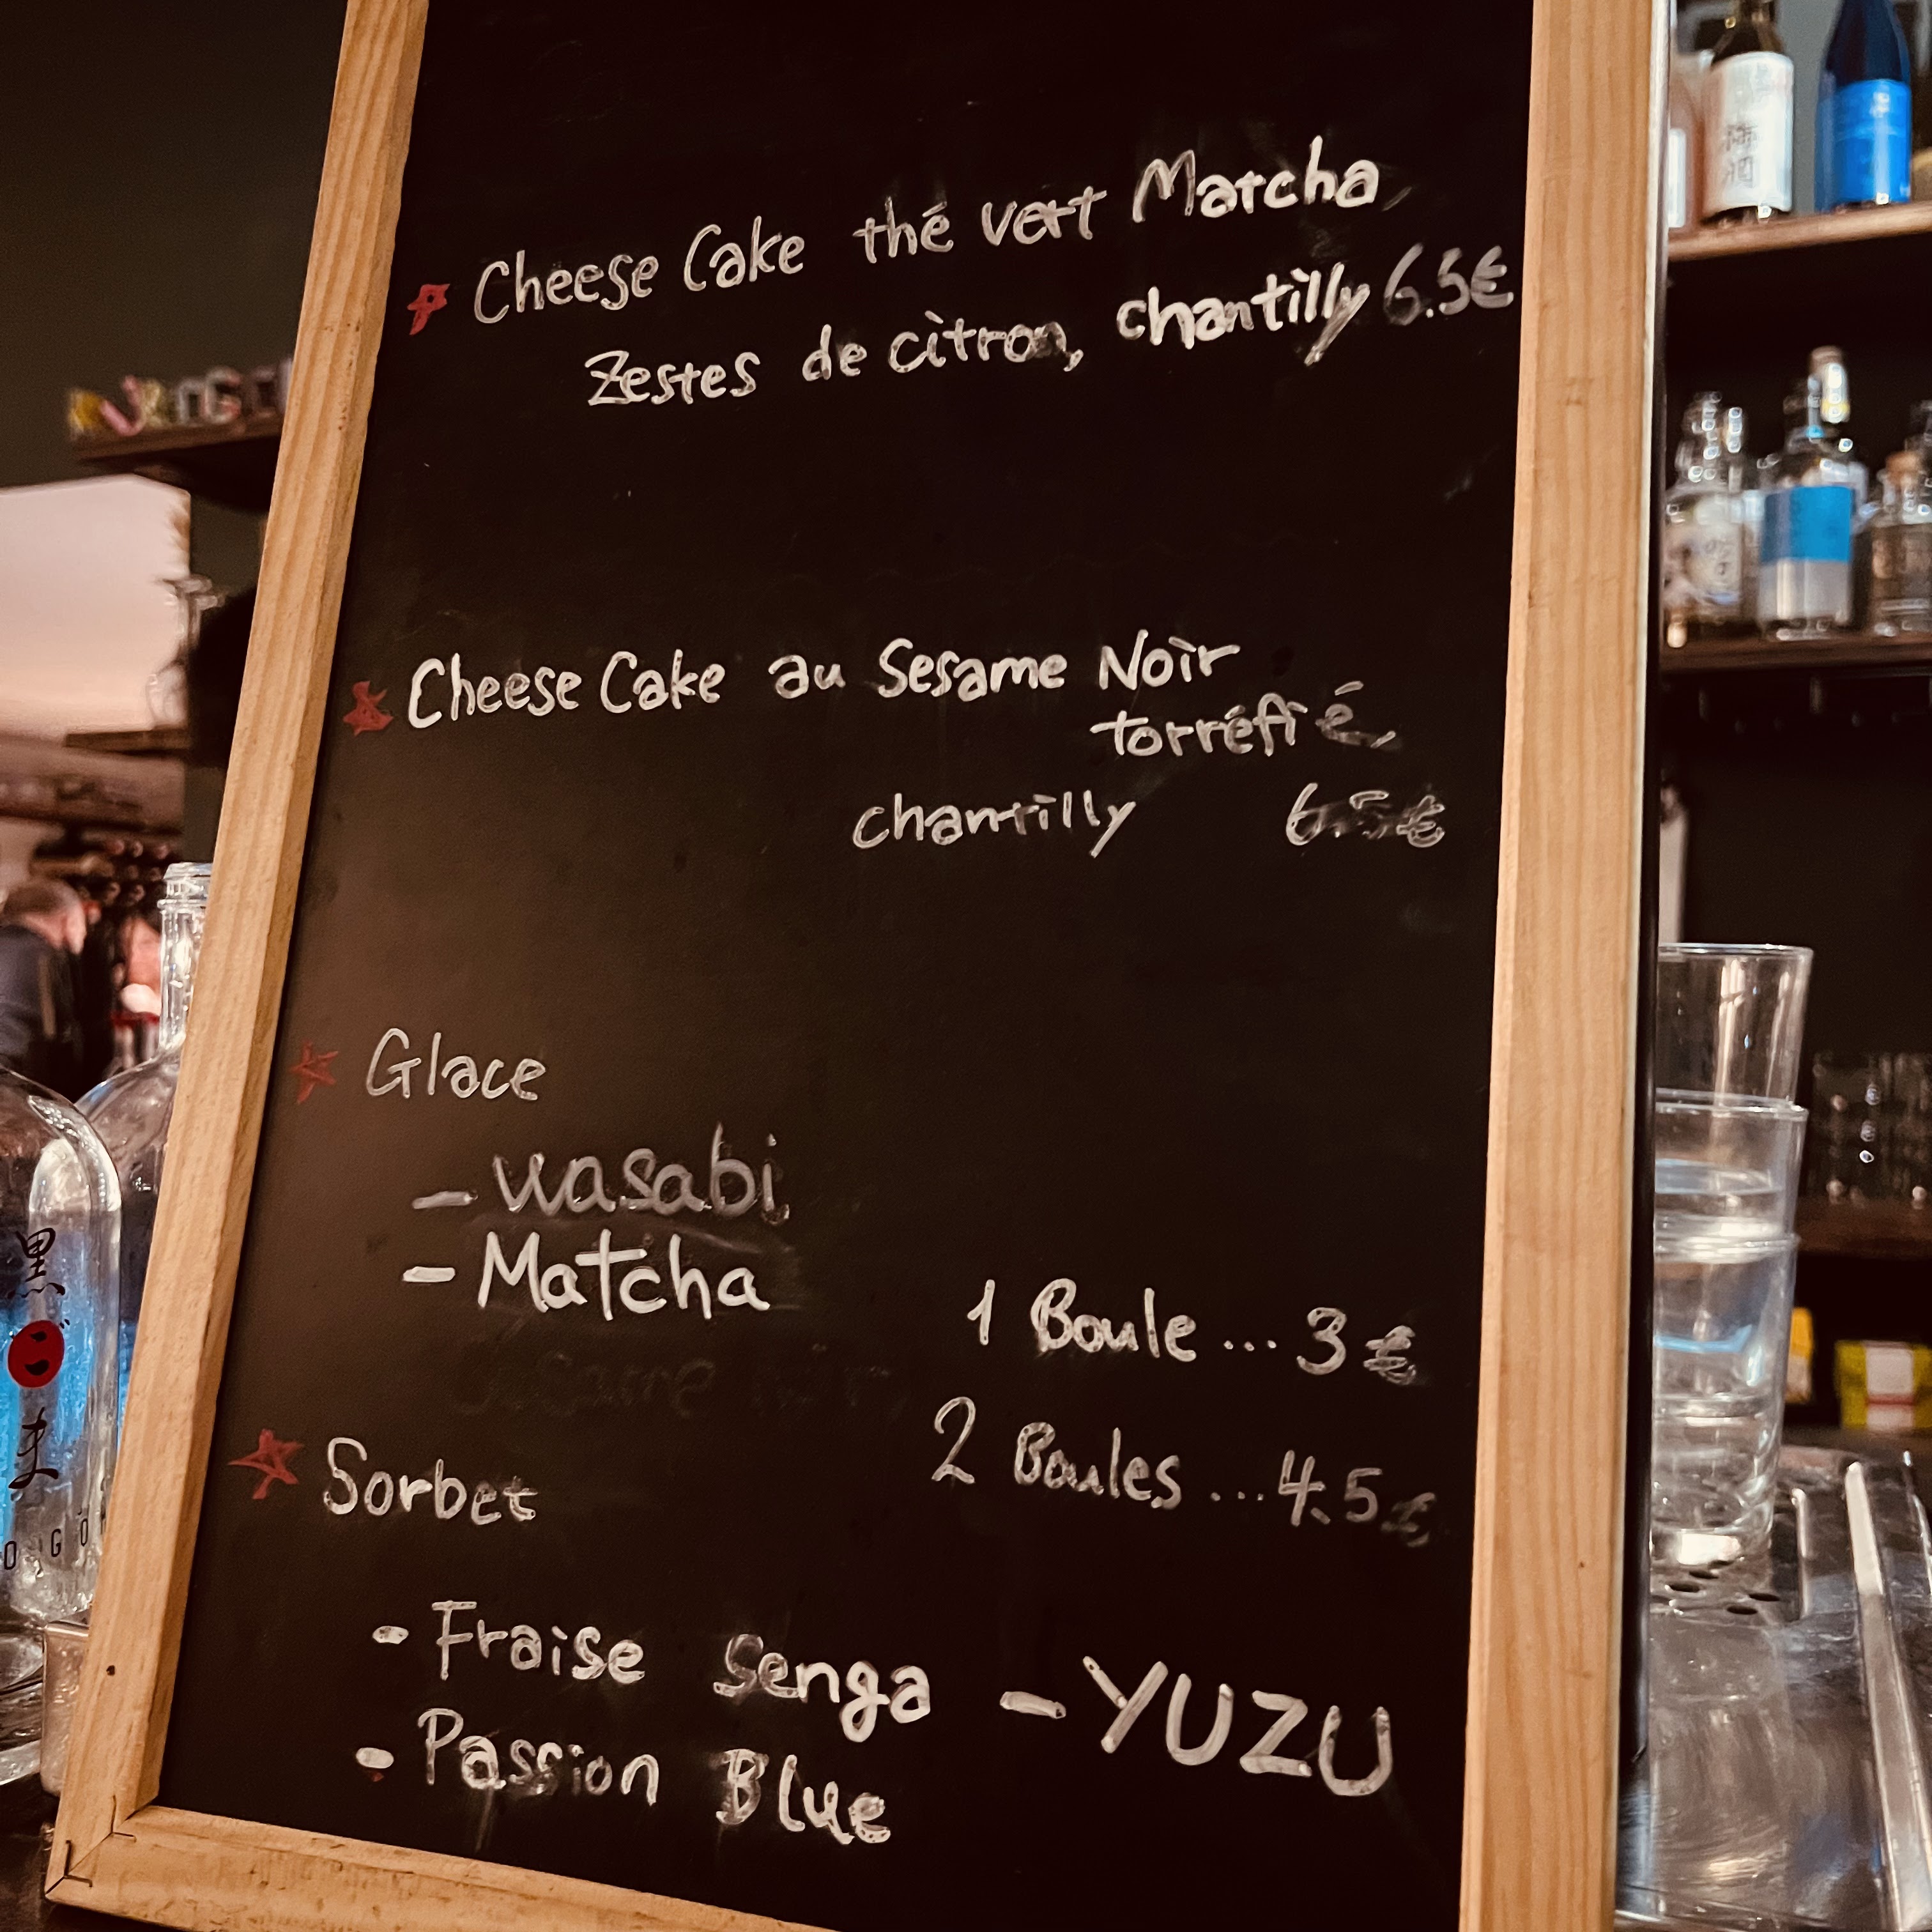 Cheese Cake thé vert Matcha,
Zestes de citron, chantilly 6.5€
Cheese Cake au Sesame Noir
torréfié,
chantilly 6.5€
Glace
- wasabi
- Matcha
1 Boule ... 3€
2 Boules ... 4.5€
Sorbet
- Fraise Senga - YUZU
- Passion Blue
梅酒
黒
ま